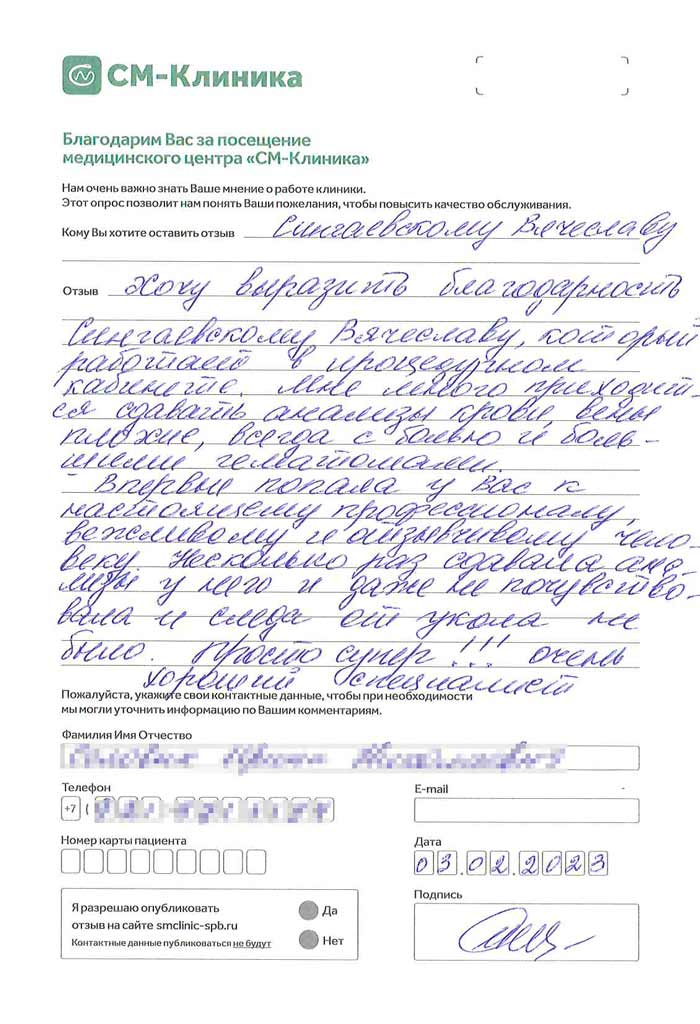 СМ-Клиника
Благодарим Вас за посещение
медицинского центра «СМ-Клиника»
Нам очень важно знать Ваше мнение о работе клиники.
Этот опрос позволит нам понять Ваши пожелания, чтобы повысить качество обслуживания.
Кому Вы хотите оставить отзыв Сингаевскому Вячеславу
Отзыв Хочу выразить благодарность
Сингаевскому Вячеславу, который
работает в процедурном
кабинете. Мне много приходит-
ся сдавать анализы крови, вены
плохие, всегда с болью и боль-
шими гематомами.
Впервые попала у Вас к
настоящему профессионалу,
вежливому и отзывчивому чело-
веку. Несколько раз сдавала ана-
лизы у него и даже не почувство-
вала и следа от укола не
было. Просто супер!!! очень
хороший специалист
Пожалуйста, укажите свои контактные данные, чтобы при необходимости
мы могли уточнить информацию по Вашим комментариям.
Фамилия Имя Отчество
Телефон
E-mail
+7 (
Номер карты пациента
Дата
03.02.2023
Подпись
Я разрешаю опубликовать
отзыв на сайте smclinic-spb.ru
Контактные данные публиковаться не будут
Да
Нет